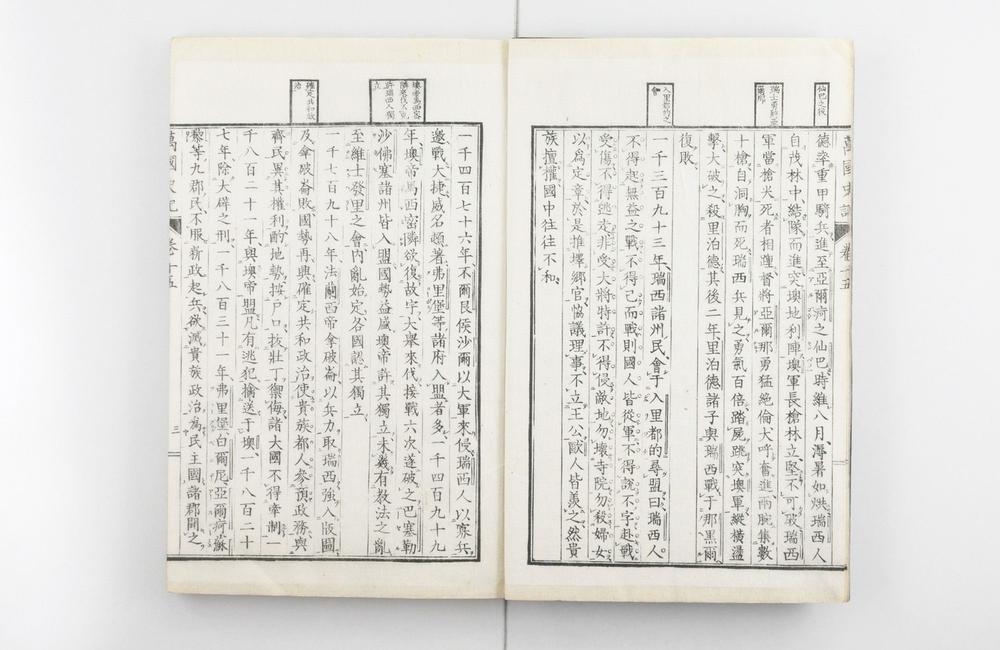 萬國史記
卷十五
仙巴之役
德率重甲騎兵進至亞爾疴之仙巴時維八月溽暑如烘瑞西人
自茂林中結隊而進突墺地利陣墺軍長槍林立堅不可破瑞西
軍當槍尖死者相踵督將亞爾那勇猛絶倫大呼奮進兩腕集數
十槍自洞胸而死瑞西兵見之勇氣百倍踏屍跳突墺軍縱橫盪
擊大破之殺里泊德其後二年里泊德諸子與瑞西戰于那黑爾
復敗
入里都的之
會
一千三百九十三年瑞西諸州民會于入里都的尋盟曰瑞西人
不得起無益之戰不得已而戰則國人皆從軍不得謀不字赴戰
受傷不得逃走非受大將特許不得侵敵地勿壞寺院勿殺婦女
以為定章於是推擇鄉官恊議理事不立王公歐人皆羨之然貴
族擅權國中往往不和
一千四百七十六年不爾艮侯沙爾以大軍來侵瑞西人以寡兵
邀戰大捷威名頗著弗里堡等諸府入盟者多一千四百九十九
許瑞西人獨
立
年墺帝馬西密隣欲復故字大舉來伐接戰六次遂破之巴塞勒
沙佛塞諸州皆入盟國勢益盛墺帝許其獨立未幾有教法之亂
至維士發里之會內亂始定各國認其獨立
一千七百九十八年法蘭西帝拿破崙以兵力取瑞西強入版圖
確定共和政
治
及拿破崙敗國勢再興確定共和政治使貴族都人參預政務與
齊民異其權利酌地勢按戶口抜壯丁禦侮諸大國不得牽制一
千八百二十一年與墺帝盟凡有逃犯擒送于墺一千八百二十
七年除大辟之刑一千八百三十一年弗里堡白爾尼亞爾疴蘇
黎等九郡民不服新政起兵欲滅貴族政治為民主國諸郡聞之
萬國史記
卷十五
三